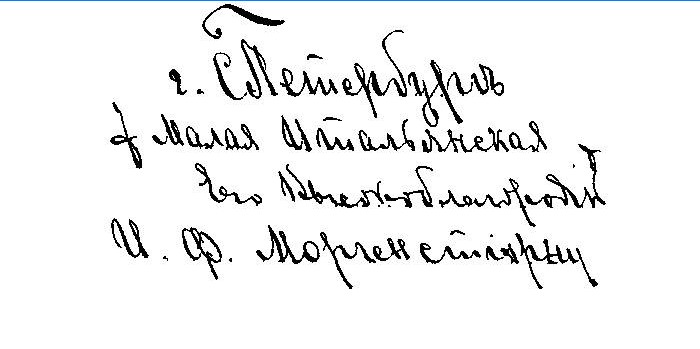 г. СПетербургъ
Малая Итальянская
Его Высокоблагородію
И. Ф. Моргенстіерну